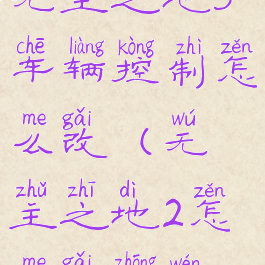 无主之地3
chē liàng kòng zhì zěn
车辆控制怎
me gǎi wú
么改（无
zhǔ zhī dì zěn
主之地2怎
me gǎi zhōng wén